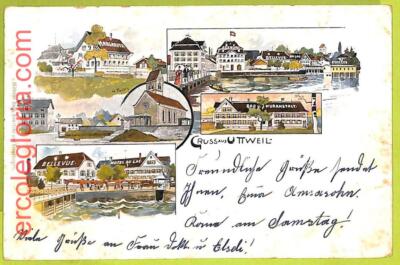 ercolegloria.com
BELLEVUE
BAD & KURANSTALT.
GRUSS AUS UTTWEIL
BELLEVUE. HOTEL AU LAC
Freundliche Grüße sendet
Ihnen,
Komme am Samstag!
Viele Grüße an Frau Dokt u Elsdi!